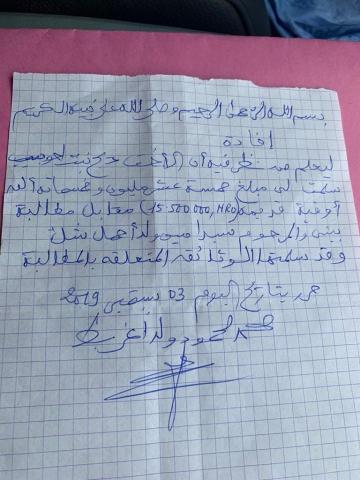 بسم الله الرحمن الرحيم وصلى الله على نبيه الكريم
إفادة
ليعلم من نظر فيه أن الأخت بنت
سلمت لي مبلغ خمسة عشر مليون وخمسمائة ألف
أوقية قديمة (15.500.000,MRO) مقابل مطالبة
بيني والمرحوم ولد
وقد سلمتها الوثائق المتعلقة بالمطالبة
حرر بتاريخ اليوم 03 دسمبر 2019
محمود ولد